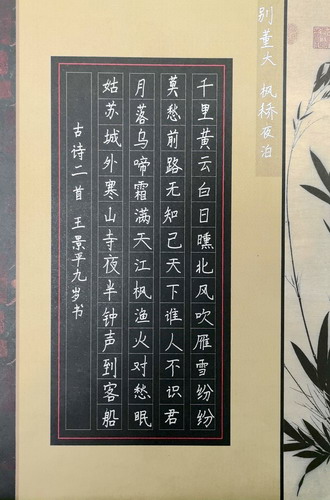 别董大 枫桥夜泊
千里黄云白日曛北风吹雁雪纷纷
莫愁前路无知己天下谁人不识君
月落乌啼霜满天江枫渔火对愁眠
姑苏城外寒山寺夜半钟声到客船
古诗二首 王景平九岁书